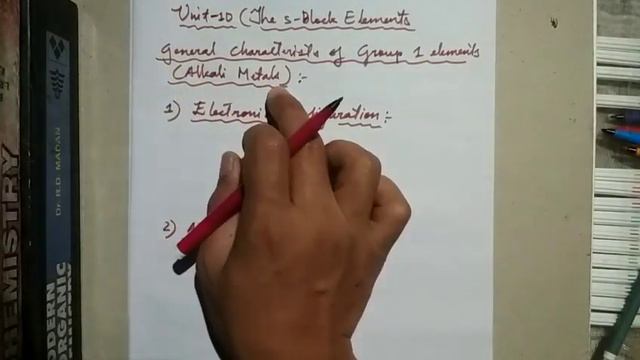 Unit-10 (The s-Block Elements
General characteristics of Group 1 elements
(Alkali Metals) :-
1) Electroni uration :-
2)
CHEMISTRY
MODERN
ORGANIC
Dr. R.D. MADAN